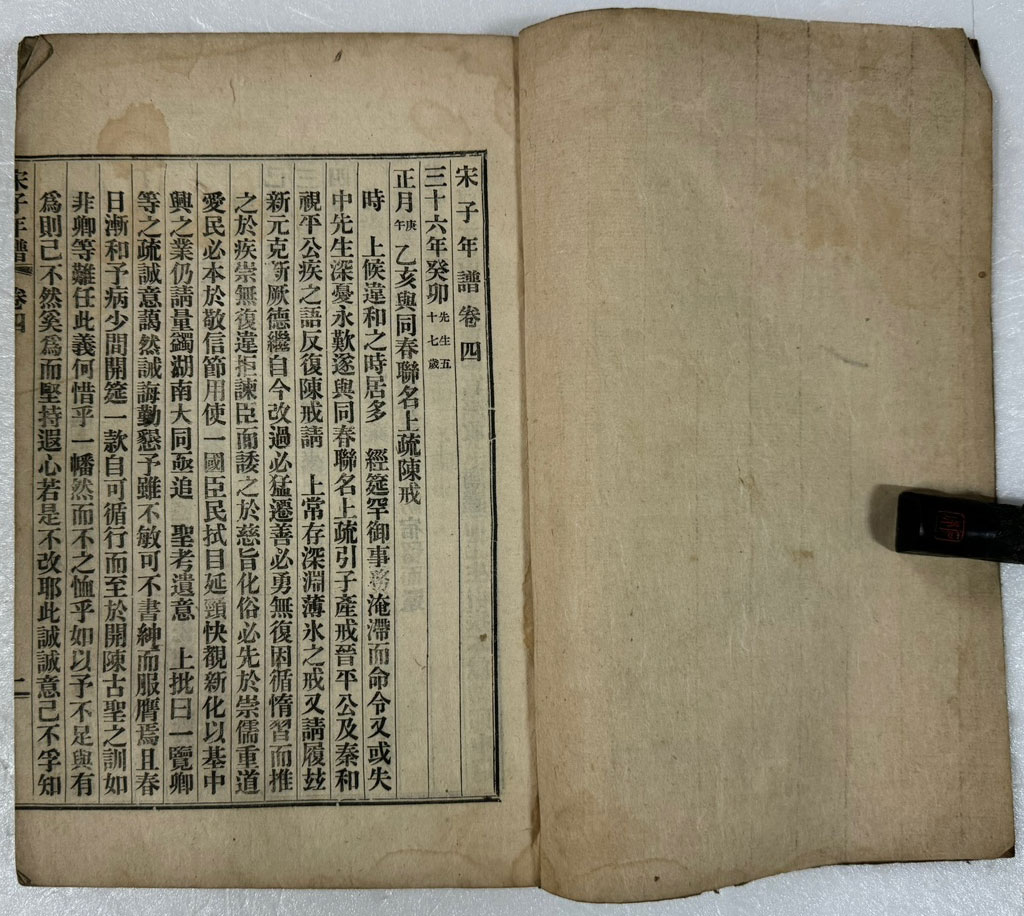 宋子年譜卷四
三十六年癸卯先生五十七歲
正月庚午乙亥與同春聯名上疏陳戒
時 上候違和之時居多 經筵罕御事務淹滯而命令又或失
中先生深憂永歎遂與同春聯名上疏引子產戒晉平公及秦和
視平公疾之語反復陳戒請 上常存深淵薄氷之戒又請履玆
新元克新厥德繼自今改過必猛遷善必勇無復因循惰習而推
之於疾崇無復違拒諫臣而諉之於慈旨化俗必先於崇儒重道
愛民必本於敬信節用使一國臣民拭目延頸快覩新化以基中
興之業仍請量蠲湖南大同亟追 聖考遺意 上批曰一覽卿
等之疏誠意藹然誠誨勤懇予雖不敏可不書紳而服膺焉且春
日漸和予病少間開筵一款自可循行而至於開陳古聖之訓如
非卿等難任此義何惜乎一幡然而不之恤乎如以予不足與有
爲則已不然奚爲而堅持遐心若是不改耶此誠誠意已不孚知
宋子年譜 卷四 一